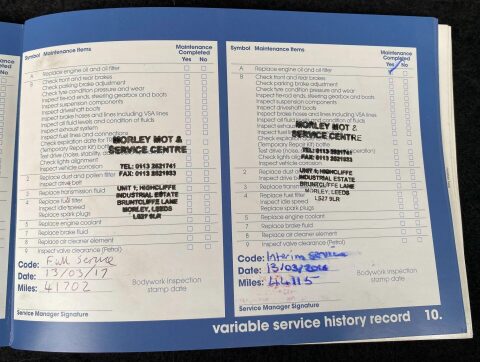 Symbol Maintenance Items
Maintenance Completed
Yes No
A Replace engine oil and oil filter
B Check front and rear brakes
Check parking brake adjustment
Check tyre condition and pressure and wear
Inspect tie-rod ends, steering gearbox and boots
Inspect suspension components
Inspect driveshaft boots
Inspect brake hoses and lines including VSA lines
Inspect all fluid levels and condition of fluids
Inspect exhaust system
Inspect fuel lines and connections
Check expiration date for
Temporary Repair
Test drive (noise, stability,
Check lights alignment
Inspect vehicle corrosion
2 Replace dust and pollen filter
Inspect drive belt
3 Replace transmission fluid
4 Replace fuel filter
Inspect idle speed
Replace spark plugs
5 Replace engine coolant
7 Replace brake fluid
8 Replace air cleaner element
9 Inspect valve clearance (Petrol)
MORLEY MOT &
SERVICE CENTRE
TEL: 0113 2521741
FAX: 0113 2521933
UNIT 1, HIGHCLIFFE
INDUSTRIAL ESTATE
BRUNTCLIFFE LANE
MORLEY, LEEDS
LS27 9LR
Code: Full Service
Date: 13/03/17
Miles: 41702
Bodywork Inspection
stamp date
Service Manager Signature
Symbol Maintenance Items
Maintenance Completed
Yes No
A Replace engine oil and oil filter
B Check front and rear brakes
Check parking brake adjustment
Check tyre condition and pressure and wear
Inspect tie-rod ends, steering gearbox and boots
Inspect suspension components
Inspect driveshaft boots
Inspect brake hoses and lines including VSA lines
Inspect all fluid levels and condition of fluids
Inspect exhaust
Inspect fuel
Check expiration
Temporary Repair Kit) bottle
Test drive (noise
Check lights
Inspect vehicle corrosion
2 Replace dust
Inspect drive
3 Replace transmission
4 Replace fuel filter
Inspect idle speed
Replace spark plugs
5 Replace engine coolant
7 Replace brake fluid
8 Replace air cleaner element
9 Inspect valve clearance (Petrol)
MORLEY MOT &
SERVICE CENTRE
TEL: 0113 2521741
FAX: 0113 2521933
UNIT 1, HIGHCLIFFE
INDUSTRIAL ESTATE
BRUNTCLIFFE LANE
MORLEY, LEEDS
LS27 9LR
Code: Interim Service
Date: 13/03/
Miles: 44115
Bodywork Inspection
stamp date
Service Manager Signature
variable service history record 10.